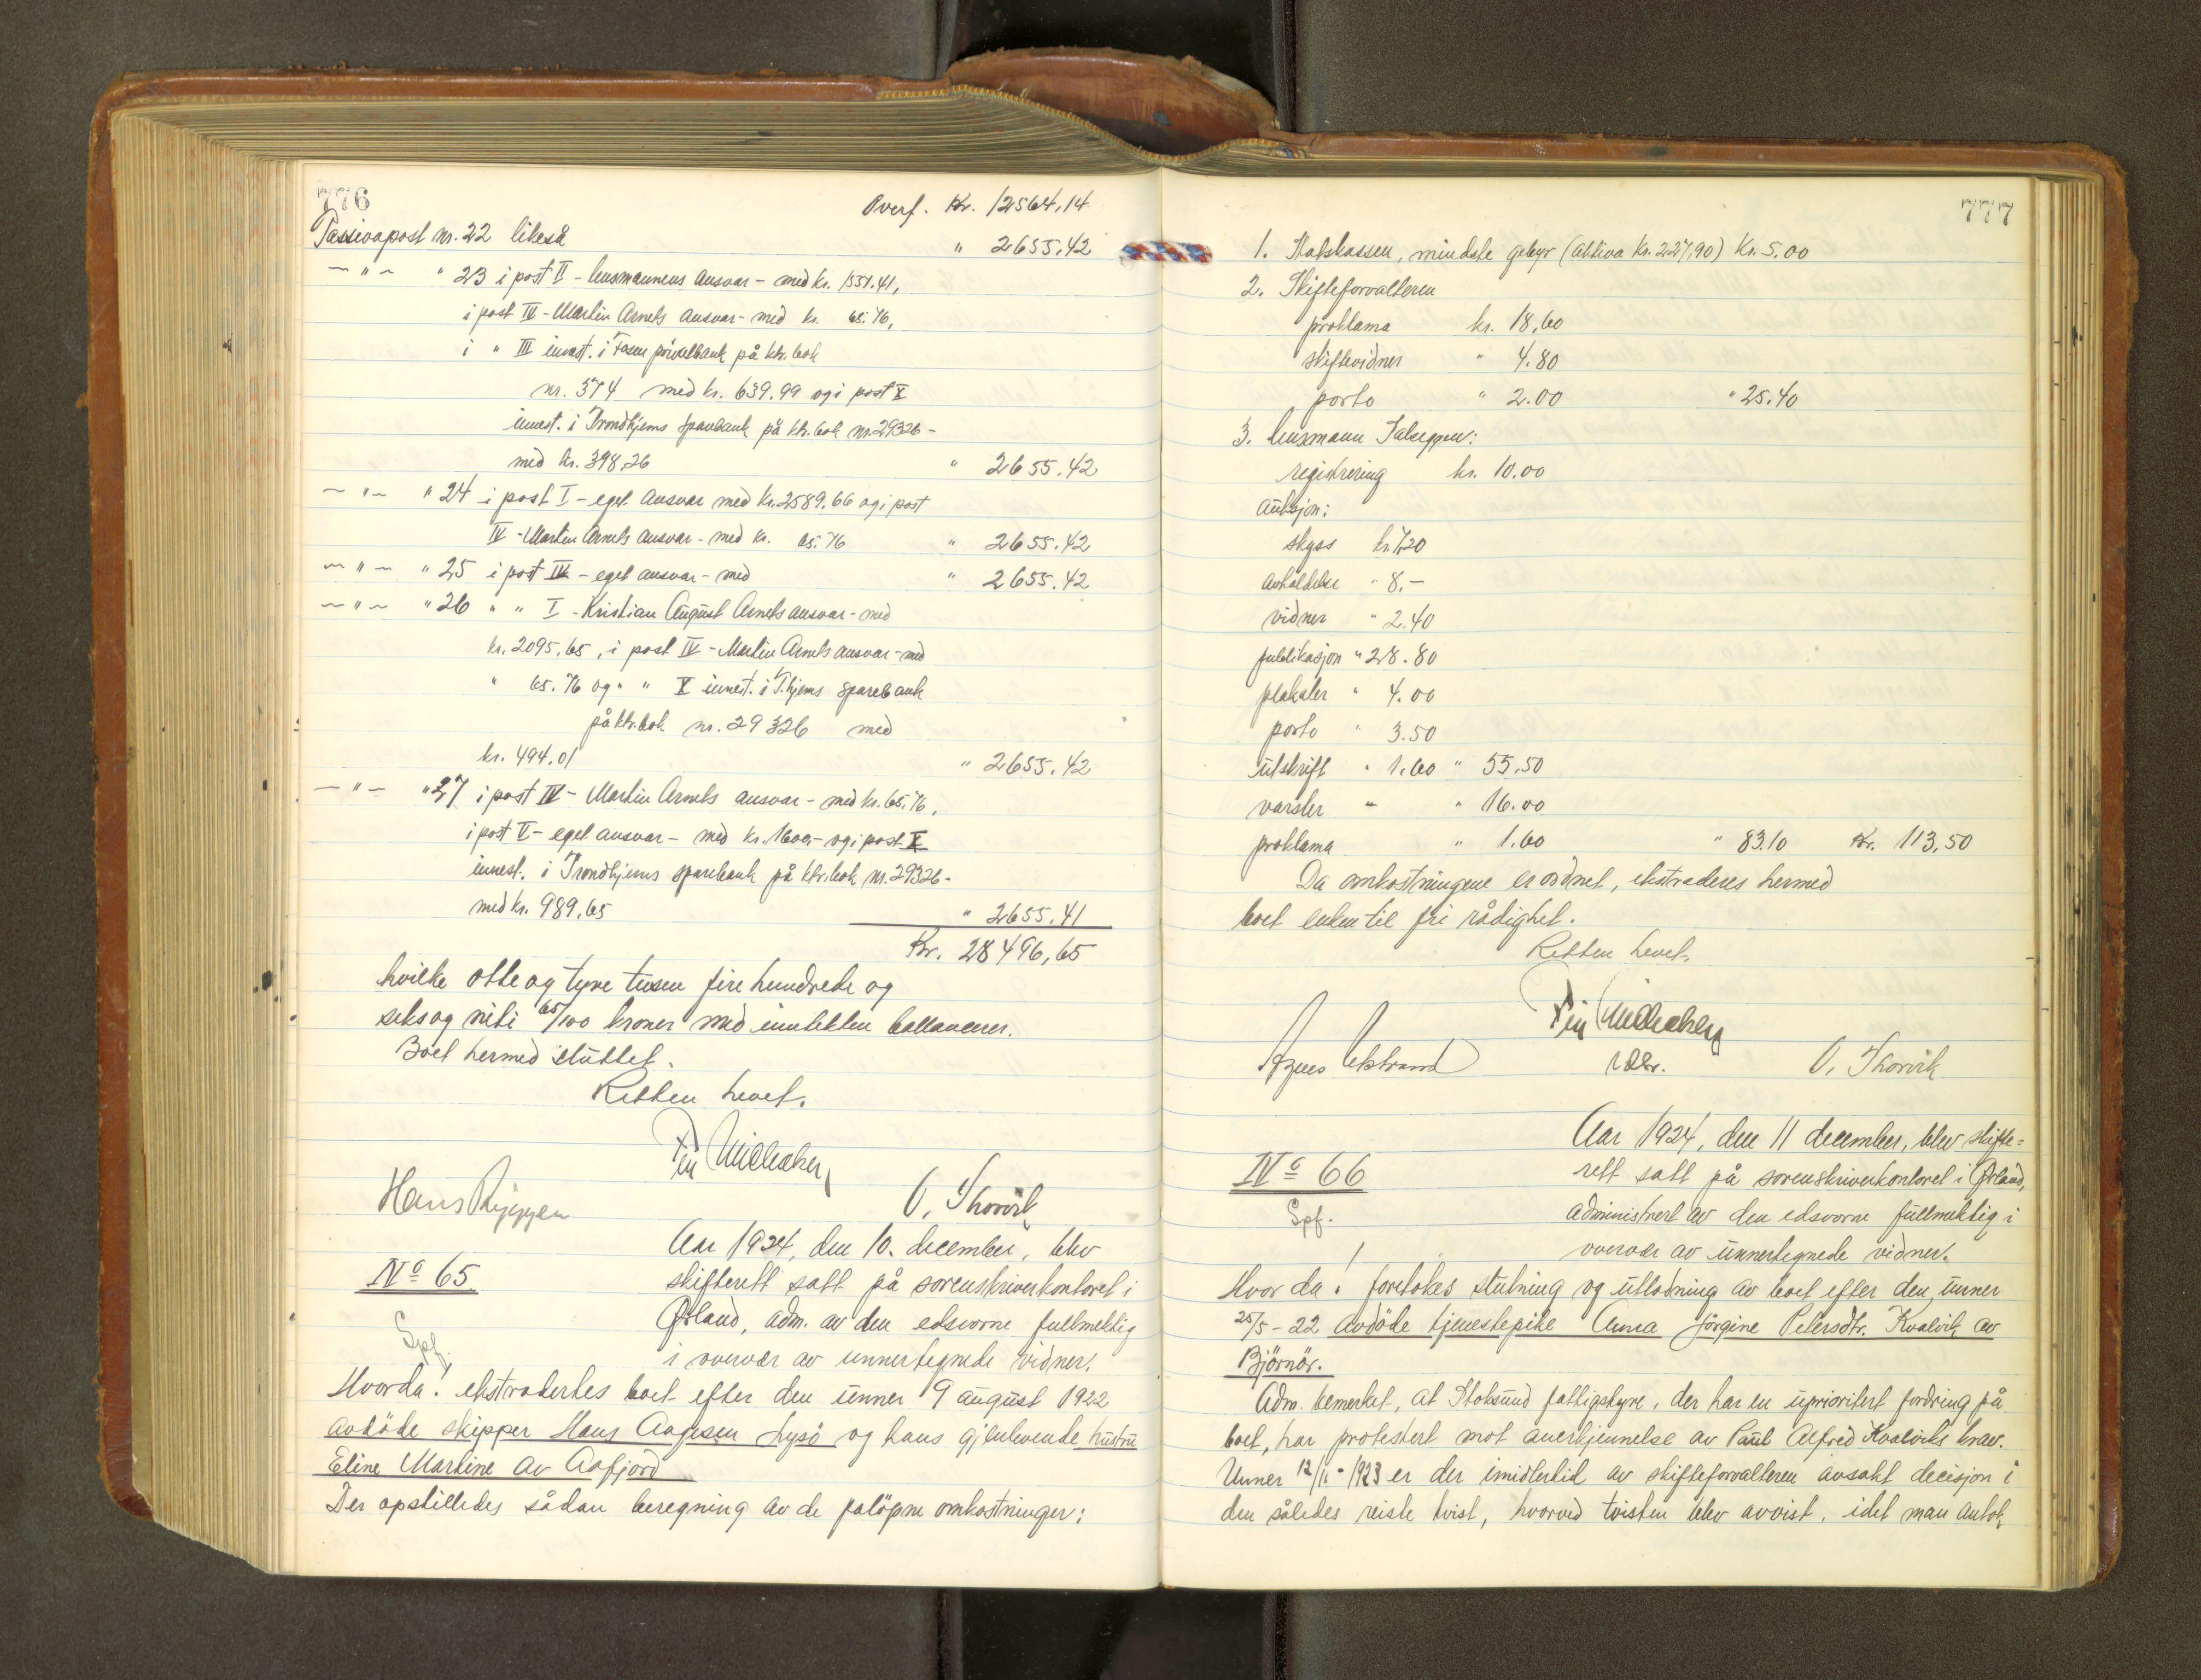 776
Overf. Kr. 12564,14
Passivapost nr. 22 likeså " 2655.42
— " — " 23 i post II - lensmannens ansvar - med kr. 1551.41,
i post IV - Martin Arnets ansvar - med kr. 65.76,
i " III innest. i Fosen privatbank på ktr. bok
nr. 374 med kr. 639.99 og i post X
innest. i Trondhjems sparebank på ktr. bok nr. 29326 -
med kr. 398,26 " 2655.42
— " — " 24 i post I - eget ansvar med kr. 2589.66 og i post
IV - Martin Arnets ansvar - med kr. 65.76 " 2655.42
— " — " 25 i post IV - eget ansvar - med " 2655.42
— " — " 26 " " I - Kristian August Arnets ansvar - med
kr. 2095,65, i post IV - Martin Arnets ansvar - med
" 65.76 og " " X innest. i T.hjems sparebank
på ktr. bok nr. 29326 med
kr. 494.01 " 2655.42
— " — " 27 i post IV - Martin Arnets ansvar - med kr. 65.76,
i post V - eget ansvar - med kr. 1600,- og i post X
innest. i Trondhjems sparebank på ktr. bok nr. 29326 -
med kr. 989,65 " 2655.41
Kr. 28496,65
hvilke otte og tyve tusen fire hundrede og
seks og niti 65/100 kroner med inntekten ballancerer.
Boet hermed sluttet.
Retten hevet.
Hans Ryggen O. Thorvik
Aar 1924, den 10. december, blev
No 65. skifterett satt på sorenskriverkontoret i
Ørland, adm. av den edsvorne fullmektig
Spf. i overvær av unnertegnede vidner.
Hvorda! ekstradertes boet efter den unner 9 august 1922
avdöde skipper Hans Aagesen Lysö og hans gjenlevende hustru
Eline Martine av Aafjord
Der opstilledes sådan beregning av de paløpne omkostninger:
777
1. Statskassen, mindste gebyr (aktiva kr. 227,90) Kr. 5.00
2. Skifteforvalteren
proklama kr. 18,60
skiftevidner " 4.80
porto " 2.00 " 25.40
3. lensmann
registrering kr. 10.00
auksjon:
skyss kr. 7,20
avholdelse " 8.-
vidner " 2.40
publikasjon " 28.80
plakater " 4.00
porto " 3.50
utskrift " 1.60 " 55.50
varsler " " 16.00
proklama " 1.60 " 83.10 Kr. 113,50
Da omkostningene er ordnet, ekstraderes hermed
boet enken til fri rådighet.
Retten hevet.
Agnes Ekstrand O. Thorvik
Aar 1924, den 11 december, blev skifte=
No 66 rett satt på sorenskriverkontoret i Ørland,
Spf. administrert av den edsvorne fullmektig i
overvær av unnertegnede vidner.
Hvor da! foretokes slutning og utlodning av boet efter den unner
25/5 - 22 avdöde tjenestepike Anna Jörgine Petersdtr. Kvalvik av
Bjørnör.
Adm. bemerket, at Stoksund fattigstyre, der har en uprioritert fordring på
boet, har protestert mot anerkjennelse av Paul Alfred Kvalviks krav.
Unner 12/11 - 1923 er der imidlertid av skifteforvalteren avsakt decisjon i
den således reiste tvist, hvorved tvisten blev avvist, idet man antok,